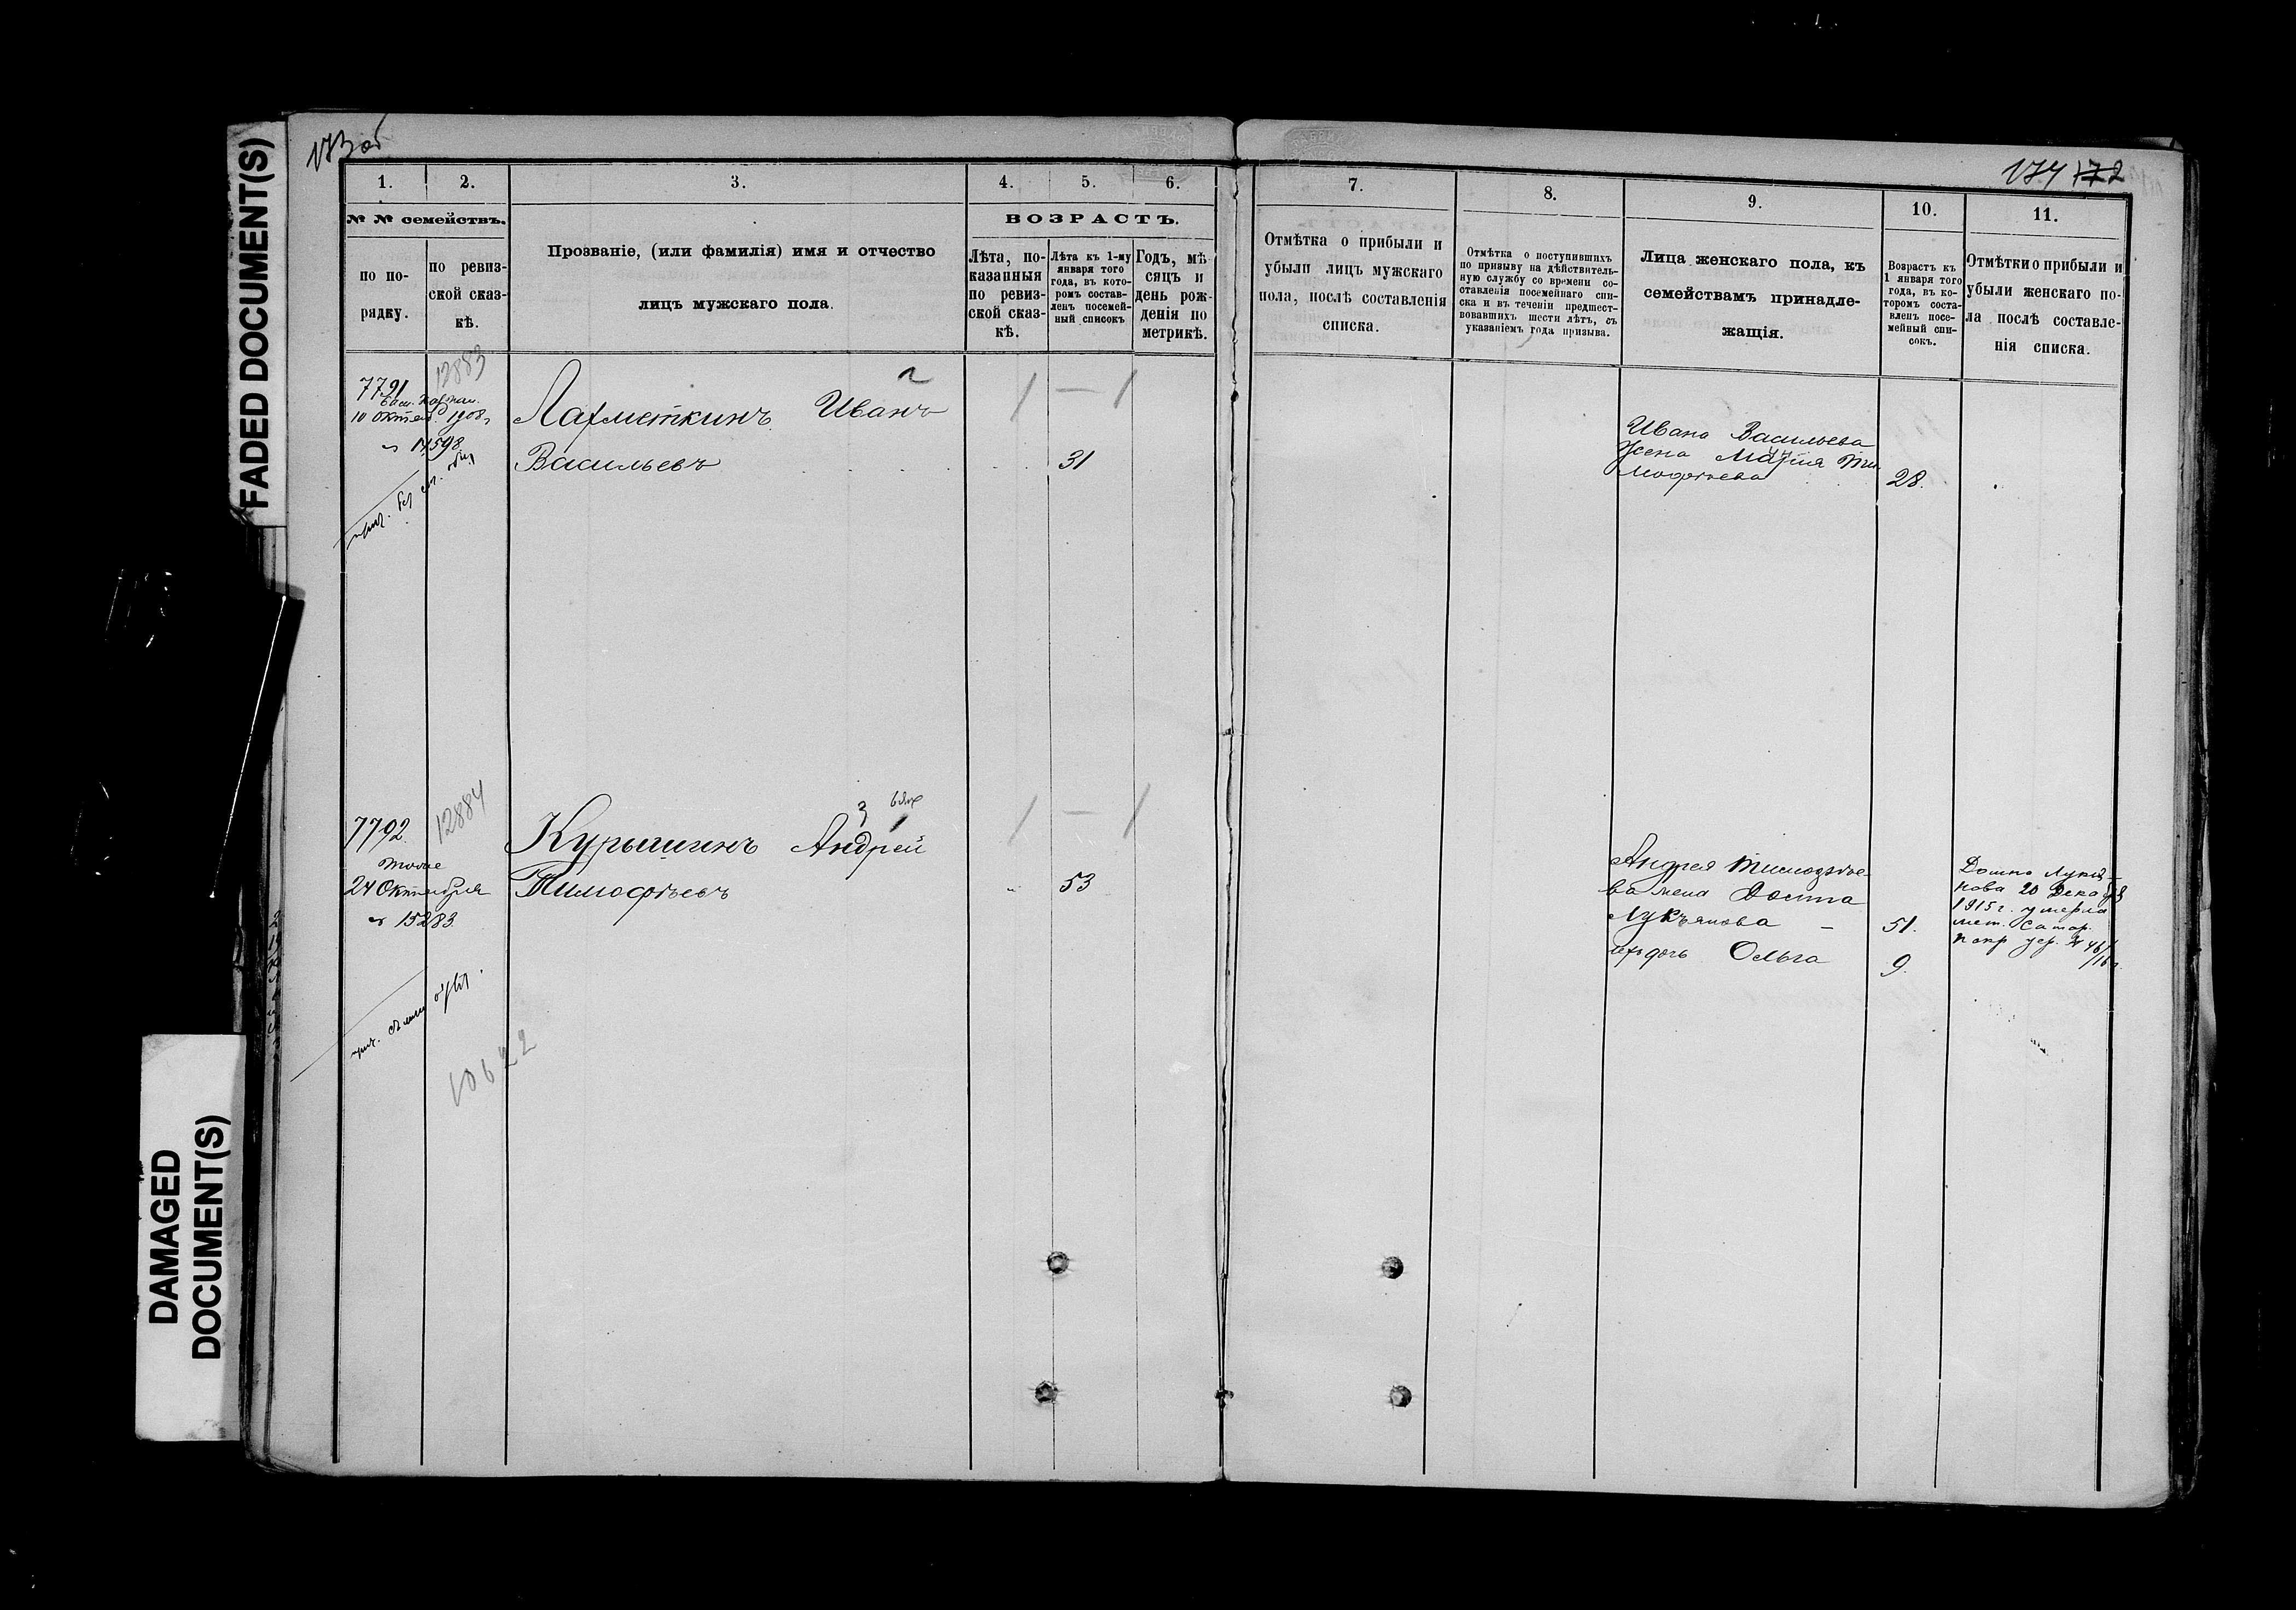 FADED DOCUMENT(S)
DAMAGED
DOCUMENT(S)
173 об
1.
2.
3.
4.
5.
6.
№ № семействъ.
ВОЗРАСТЪ.
по по-
рядку.
по ревиз-
ской сказ-
кѣ.
Прозваніе, (или фамилія) имя и отчество
лицъ мужскаго пола.
Лѣта, по-
казанныя
по ревиз-
ской сказ-
кѣ.
Лѣта къ 1-му
января того
года, въ кото-
ромъ состав-
ленъ посемей-
ный списокъ
Годъ, мѣ-
сяцъ и
день рож-
денія по
метрикѣ.
7791
12883
10 Октяб. 1908 г
№ 14598
Лахметкинъ Иванъ
2
Васильевъ
31
1 — 1
7792
12884
тоже
24 Октября
№ 15283
3
Курышинъ Андрей
Тимофѣевъ
53
1 — 1
10622
174 172
7.
8.
9.
10.
11.
Отмѣтка о прибыли и
убыли лицъ мужскаго
пола, послѣ составленія
списка.
Отмѣтка о поступившихъ
по призыву на дѣйствитель-
ную службу со времени со-
ставленія посемейнаго спи-
ска и въ теченіи предшест-
вовавшихъ шести лѣтъ, съ
указаніемъ года призыва.
Лица женскаго пола, къ
семействамъ принадле-
жащія.
Возрастъ къ
1 января того
года, въ ко-
торомъ соста-
вленъ посе-
мейный спи-
сокъ.
Отмѣтки о прибыли и
убыли женскаго по-
ла послѣ составле-
нія списка.
Ивана Васильева
Жена Марія Ти
мофѣева
28.
Андрея Тимофѣе-
ва жена
Лукъянова
51.
дочь Ольга
9.
Лукья-
нова 20 Декабря
1915 г. умерла
мет.